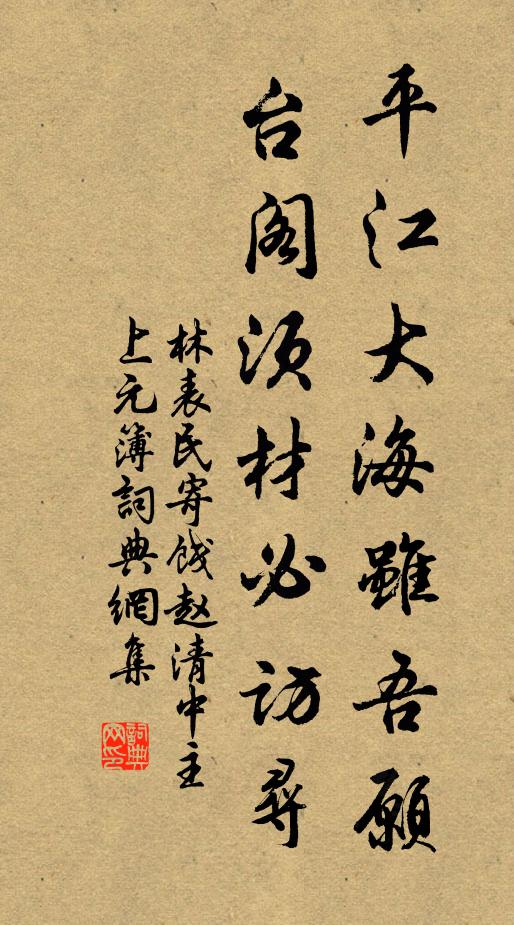 平江大海雖吾願
台阁须材必访尋
林表民寄饯赵清中主
上元簿詞典網集
詞典
网印